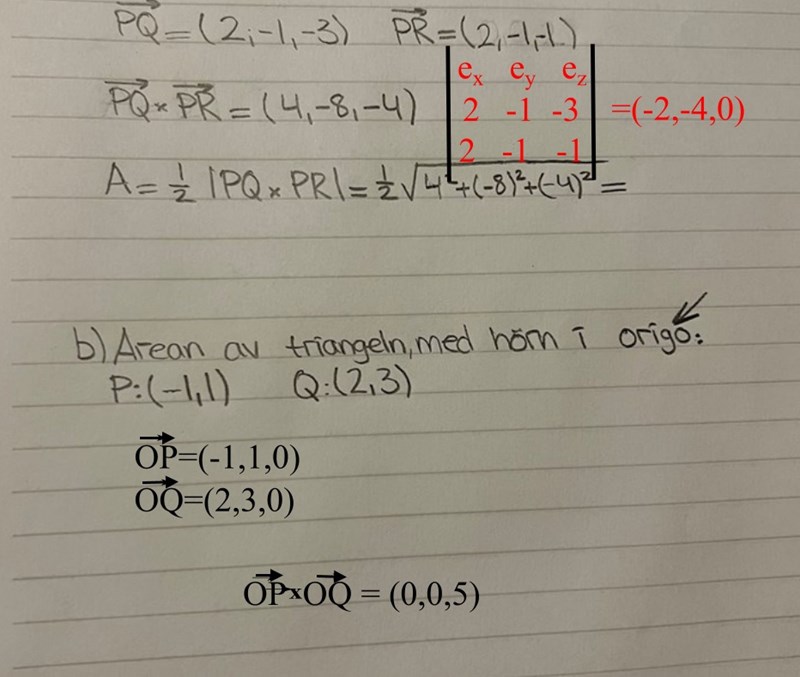 PQ=(2,-1,-3) PR=(2,-1,-1)
PQ×PR=(4,-8,-4)
ex ey ez
2 -1 -3 =(-2,-4,0)
2 -1 -1
A=½|PQ×PR|=½√4²+(-8)²+(-4)²=
b) Arean av triangeln, med hörn i origo:
P:(-1,1) Q:(2,3)
OP=(-1,1,0)
OQ=(2,3,0)
OP×OQ = (0,0,5)